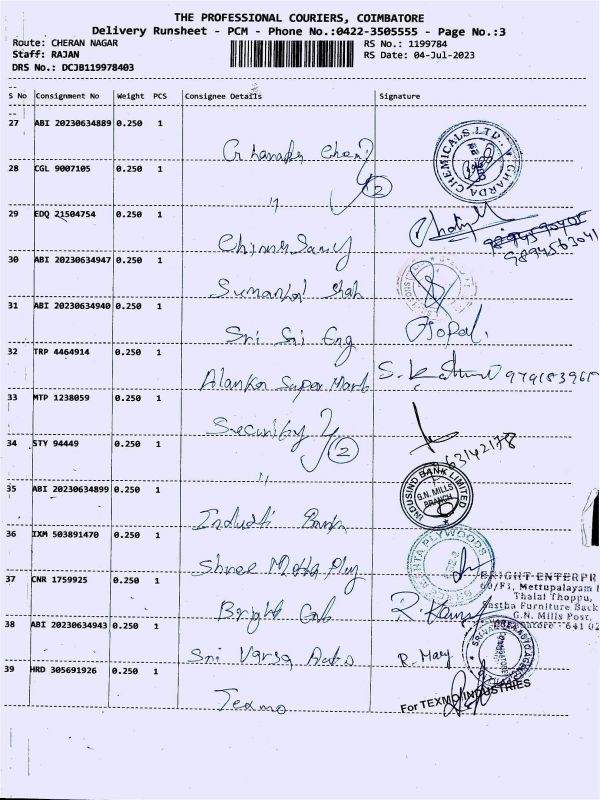 THE PROFESSIONAL COURIERS, COIMBATORE
Delivery Runsheet - PCM - Phone No.:0422-3505555 - Page No.:3
Route: CHERAN NAGAR RS No.: 1199784
Staff: RAJAN RS Date: 04-Jul-2023
DRS No.: DCJB119978403
S No Consignment No Weight PCS Consignee Details Signature
27 ABI 20230634889 0.250 1
CHEMICALS LTD. GHARDA
28 CGL 9007105 0.250 1
" 2
29 EDQ 21504754 0.250 1
Chinnusamy
9894563041
30 ABI 20230634947 0.250 1
Shah
31 ABI 20230634940 0.250 1
Sri Sri Eng Gopal.
32 TRP 4464914 0.250 1
Alankar Super Mark S.
33 MTP 1238059 0.250 1
Security
34 STY 94449 0.250 1
" 2
63142178
35 ABI 20230634899 0.250 1
INDUSIND BANK LIMITED G.N. MILLS BRANCH
Bank
36 IXM 503891470 0.250 1
PLYWOODS
Shree Mata Ply
37 CNR 1759925 0.250 1
BRIGHT ENTERPR
60/F1, Mettupalayam
Thalat Thoppu,
Sastha Furniture Back
G.N. Mills Post,
641 02
Bright R.
38 ABI 20230634943 0.250 1
Sri Varsa Auto R. Mary
39 HRD 305691926 0.250 1
Texmo For TEXMO INDUSTRIES